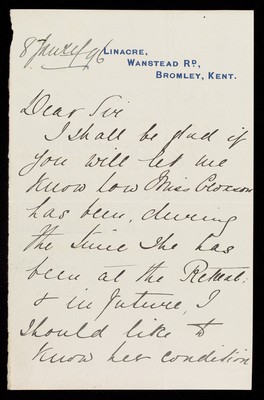 8 Jany 96
LINACRE,
WANSTEAD RD,
BROMLEY, KENT.
Dear Sir
I shall be glad if
you will let me
know how Miss
has been, during
the time she has
been at the Retreat:
& in future, I
should like to
know her condition